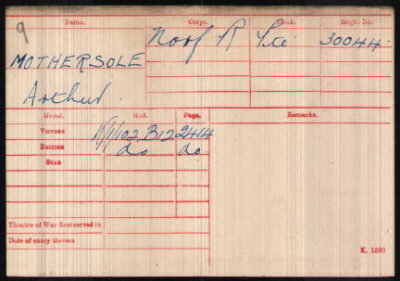 9
Name. Corps. Rank. Regtl. No.
MOTHERSOLE Norf R Pte 30044
Arthur.
Medal. Roll. Page. Remarks.
VICTORY R/1/102.B12 2414
BRITISH do do.
STAR
Theatre of War first served in
Date of entry therein
K. 1380